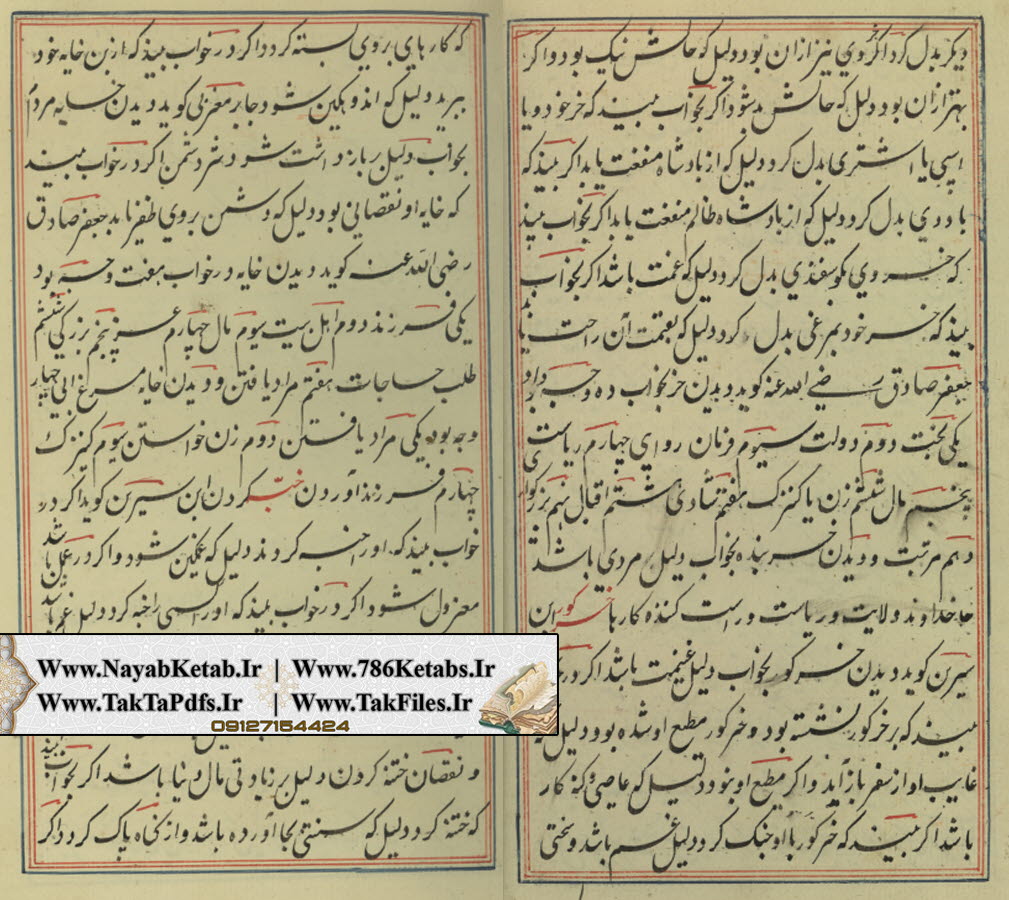 دیکر بدل کرد اکر خر وی نیز ازان بود دلیل که حالش نیک بود و اکر
بهتر ازان بود دلیل که حالش بد شود اکر بخواب بیند که خر خود و یا
اسپی یا اشتری بدل کرد دلیل که از بادشاه منفعت یابد اکر بیند که
با وی بدل کرد دلیل که از بادشاه ظالم منفعت یابد اکر بخواب بیند
که خر وی بکوسفندی بدل کرد دلیل که غمت باشد اکر بخواب
بیند که خر خود بمرغی بدل کرد دلیل که بقیمت آن راحت
جعفر صادق رضی الله عنه کوید دیدن خر بخواب ده وجه دارد
یکی بخت دوم دولت سیوم فرمان روای چهارم ریاستی
پنجم مال ششم زن یا کنیزک هفتم شادی هشتم اقبال نهم بزرکوار
دهم مرتبت و دیدن خر بنده بخواب دلیل مردی باشد
خداوند ولایت و ریاست و راست کننده کارها خر کور ابن
سیرین کوید دیدن خر کور بخواب دلیل غنیمت باشد اکر در
بیند که بر خر کور نشسته بود و خر کور مطیع او شده بود دلیل که
غایب او از سفر باز آید و اکر مطیع او نبود دلیل که عاصی کنه کار
باشد اکر بیند که خر کور با او جنک کرد دلیل غم باشد و سختی
که کارهای بروی بسته کردد اکر در خواب بیند که از بن خایه خود
ببرید دلیل که اندوهکین شود جابر مغربی کوید دیدن خایه مردم
بخواب دلیل بر باز داشت شود شر دشمن اکر در خواب بیند
که خایه او نقصانی بود دلیل که دشمن بروی ظفر یابد جعفر صادق
رضی الله عنه کوید دیدن خایه در خواب هفت وجه بود
یکی فرزند دوم اهل بیت سیوم مال چهارم عز پنجم بزرکی ششم
طلب حاجات هفتم مراد یافتن و دیدن خایه مرغ چهار
وجه بود یکی مراد یافتن دوم زن خواستن سیوم کنیزک
چهارم فرزند آوردن خبه کردن ابن سیرین کوید اکر در
خواب بیند که اورا خبه کردند دلیل که غمکین شود و اکر در عمل باشد
معزول شود اکر در خواب بیند که او کسی را خبه کرد دلیل غم باشد
Www.NayabKetab.Ir | Www.786Ketabs.Ir
Www.TakTaPdfs.Ir | Www.TakFiles.Ir
09127154424
و نقصان ختنه کردن دلیل بر زیادتی مال و دنیا باشد اکر بخواب بیند
که ختنه کرد دلیل که سنتی بجا آورده باشد و از کناه پاک کردد اکر